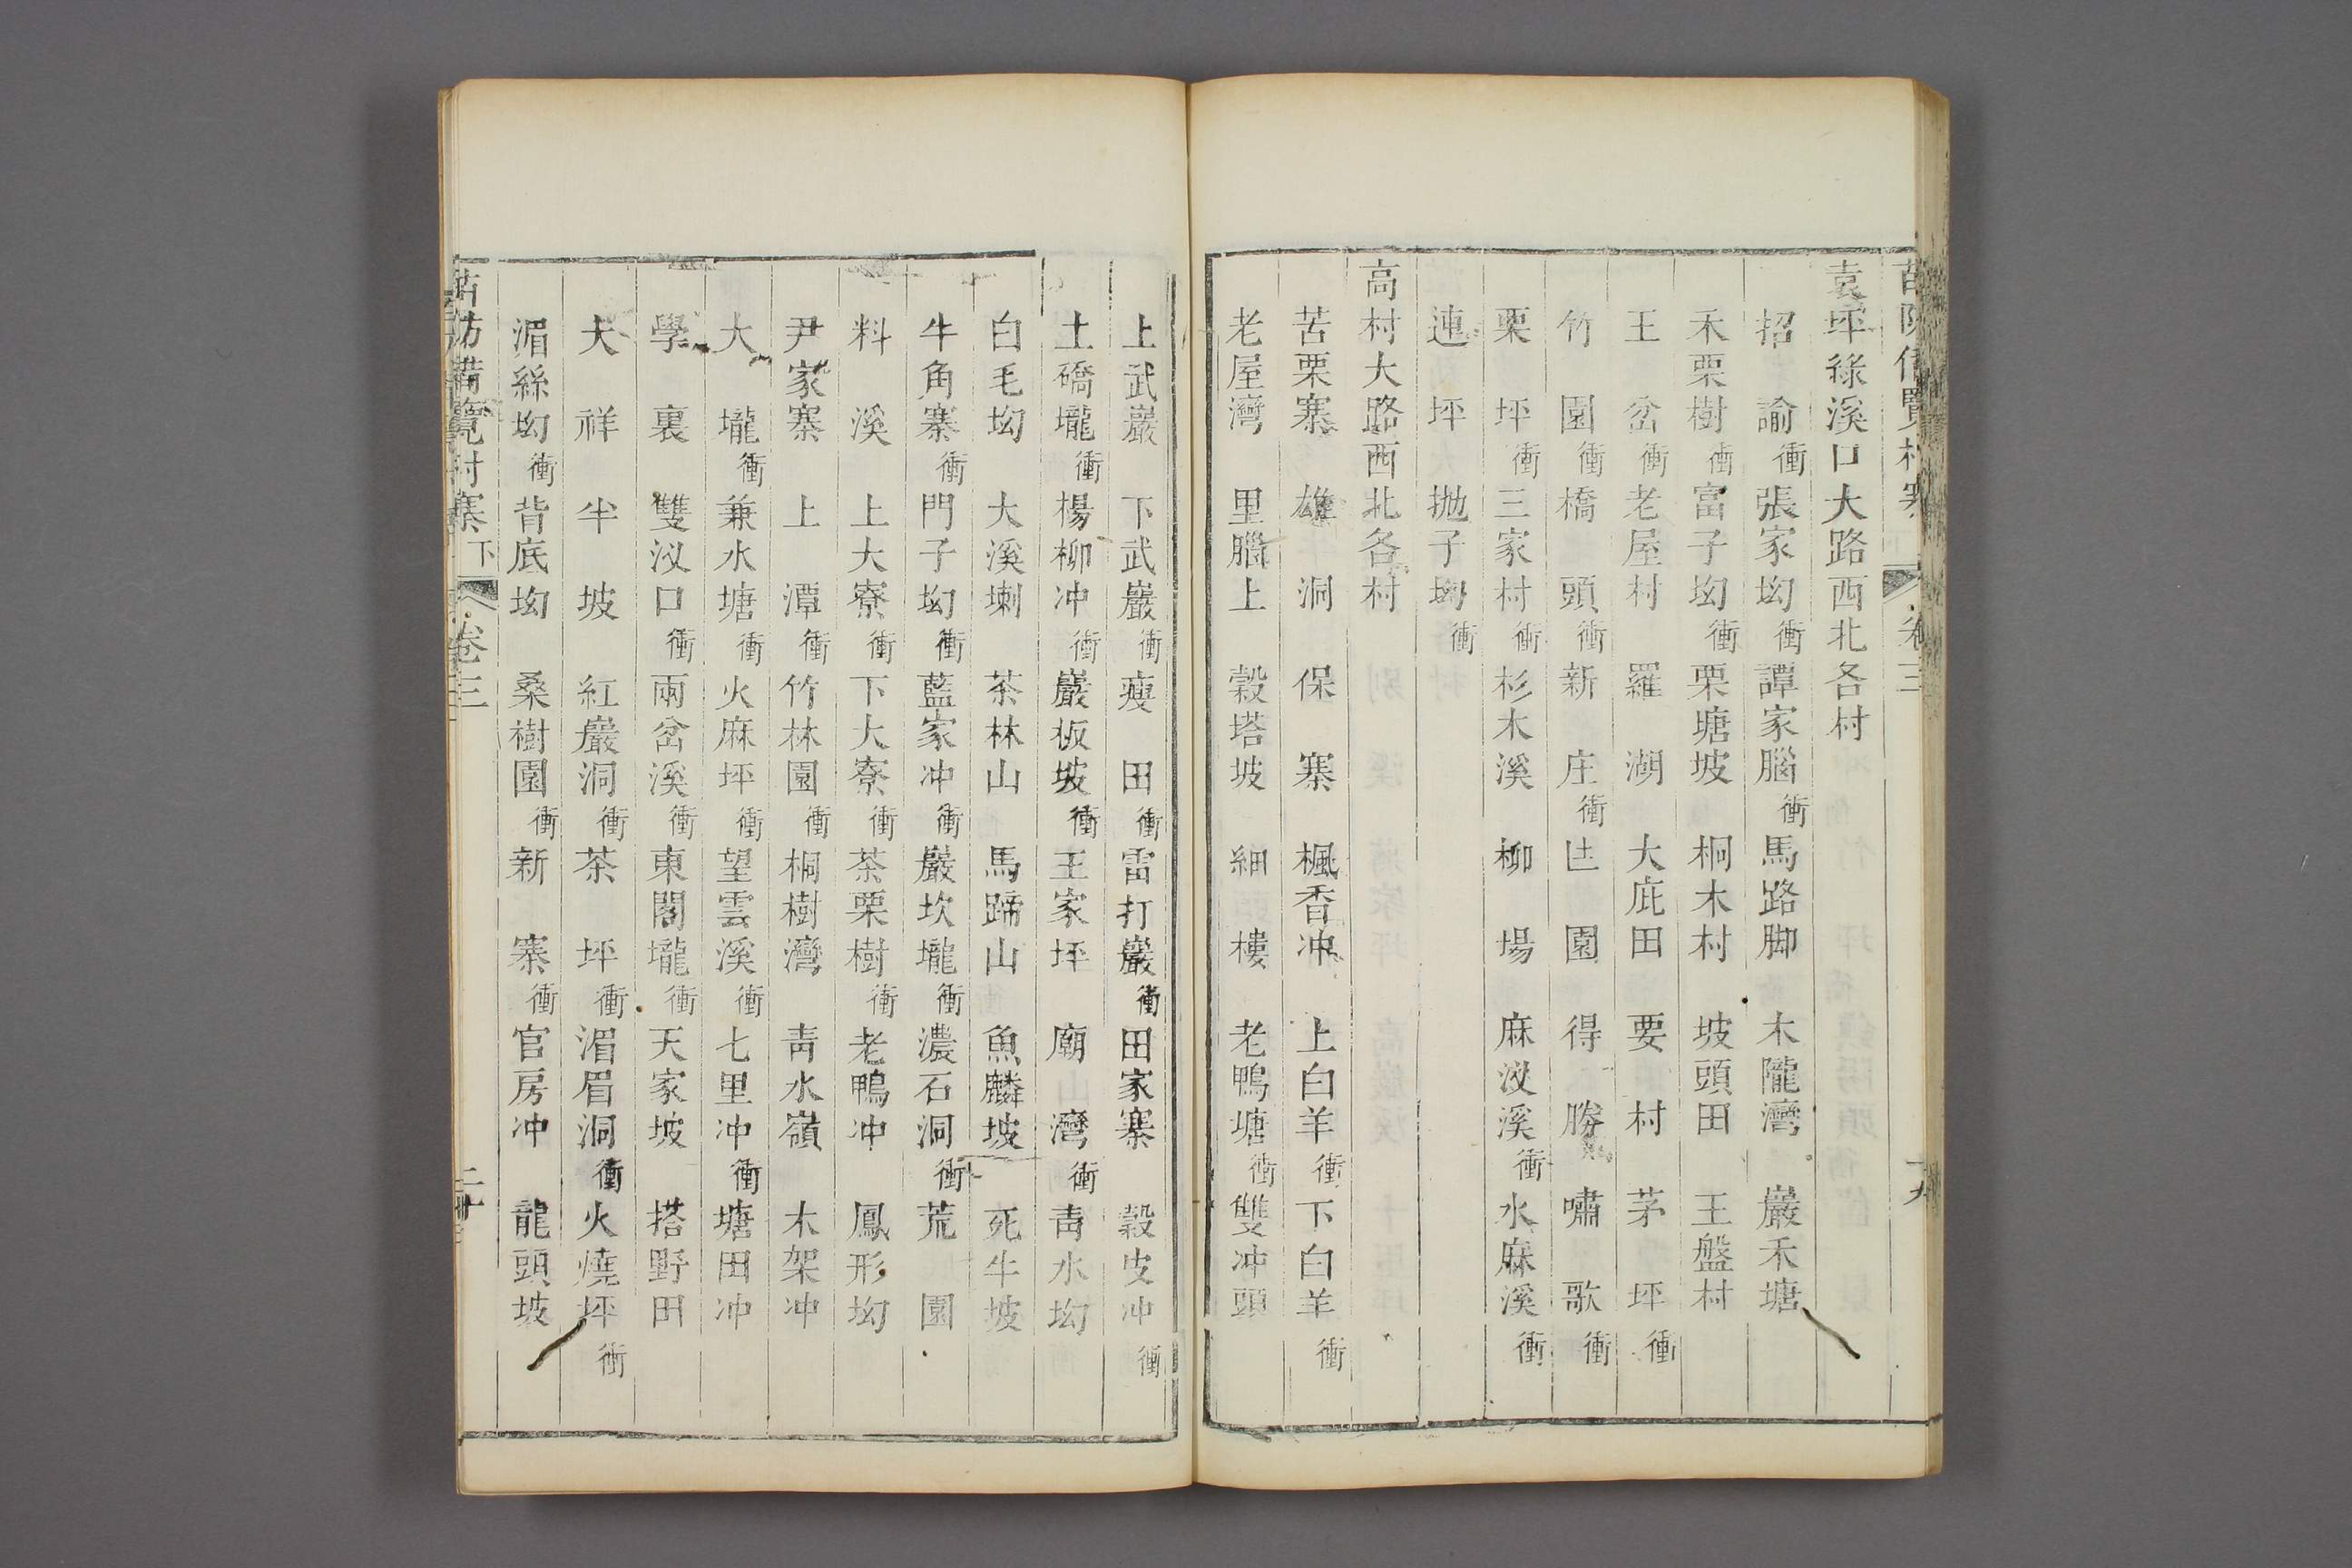 袁坪緑溪口大路西北各村
招諭衝 張家坳衝 譚家腦衝 馬路脚 木隴灣 巖禾塘
禾栗樹衝 富子坳衝 栗塘坡 桐木村 坡頭田 王盤村
王岔衝 老屋村 羅湖 大庇田 要村 茅坪衝
竹園衝 橋頭衝 新庄衝 園 得勝 嘯歌衝
栗坪衝 三家村衝 杉木溪 柳場 麻汊溪衝 水麻溪衝
連坪 抛子坳衝
高村大路西北各村
苦栗寨 雄洞 保寨 楓香冲 上白羊衝 下白羊衝
老屋灣 里腦上 穀塔坡 細樓 老鴨塘衝 雙冲頭
上武巖 下武巖衝 瘦田衝 雷打巖衝 田家寨 穀皮冲衝
土礄壠衝 楊柳冲衝 巖板坡衝 王家坪 廟山灣衝 靑水坳
白毛坳 大溪喇 茶林山 馬蹄山 魚麟坡 死牛坡
牛角寨衝 門子坳衝 藍家冲衝 巖坎壠衝 濃石洞衝 荒園
料溪 上大寮衝 下大寮衝 茶栗樹衝 老鴨冲 鳳形坳
尹家寨 上潭衝 竹林園衝 桐樹灣 靑水嶺 木架冲
大壠衝 兼水塘衝 火麻坪衝 望雲溪衝 七里冲衝 塘田冲
學裏 雙汊口衝 兩岔溪衝 東閣壠衝 天家坡 搭野田
大祥 半坡 紅巖洞衝 茶坪衝 湄眉洞衝 火燒坪衝
湄絲坳衝 背底坳 桑樹園衝 新寨衝 官房冲 龍頭坡
苗防備覽村寨下 卷三 二十